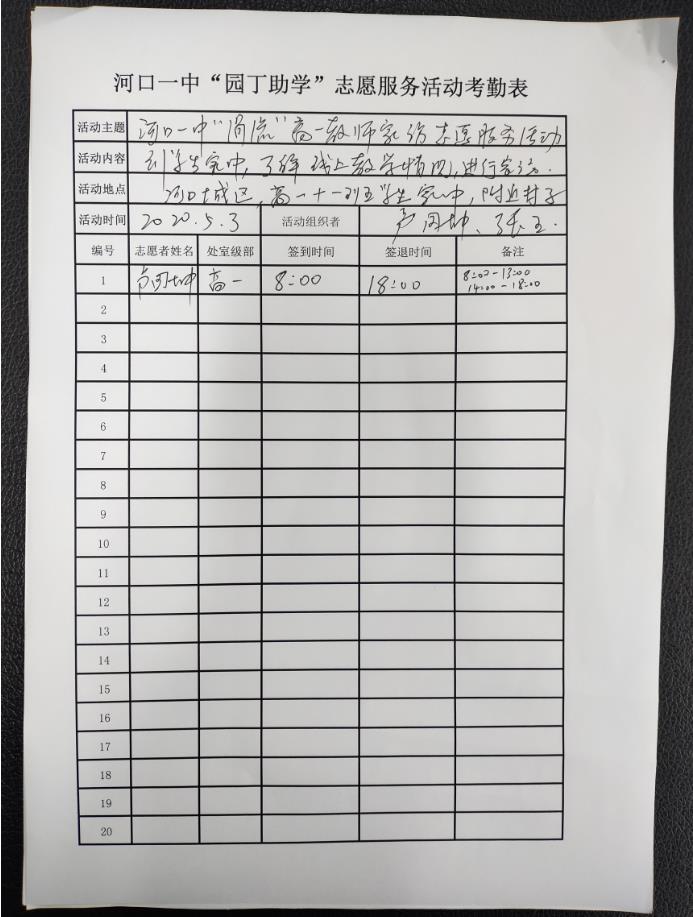 河口一中“园丁助学”志愿服务活动考勤表
活动主题 河口一中“涓流”高一教师家访志愿服务活动
活动内容 到学生家中,了解线上教学情况,进行家访.
活动地点 河口城区,高一十一班学生家中,附近村子
活动时间 2020.5.3 活动组织者 卢同坤、张玉.
编号 志愿者姓名 处室级部 签到时间 签退时间 备注
1 卢同坤 高一 8:00 18:00 8:00-13:00
14:00-18:00
2
3
4
5
6
7
8
9
10
11
12
13
14
15
16
17
18
19
20